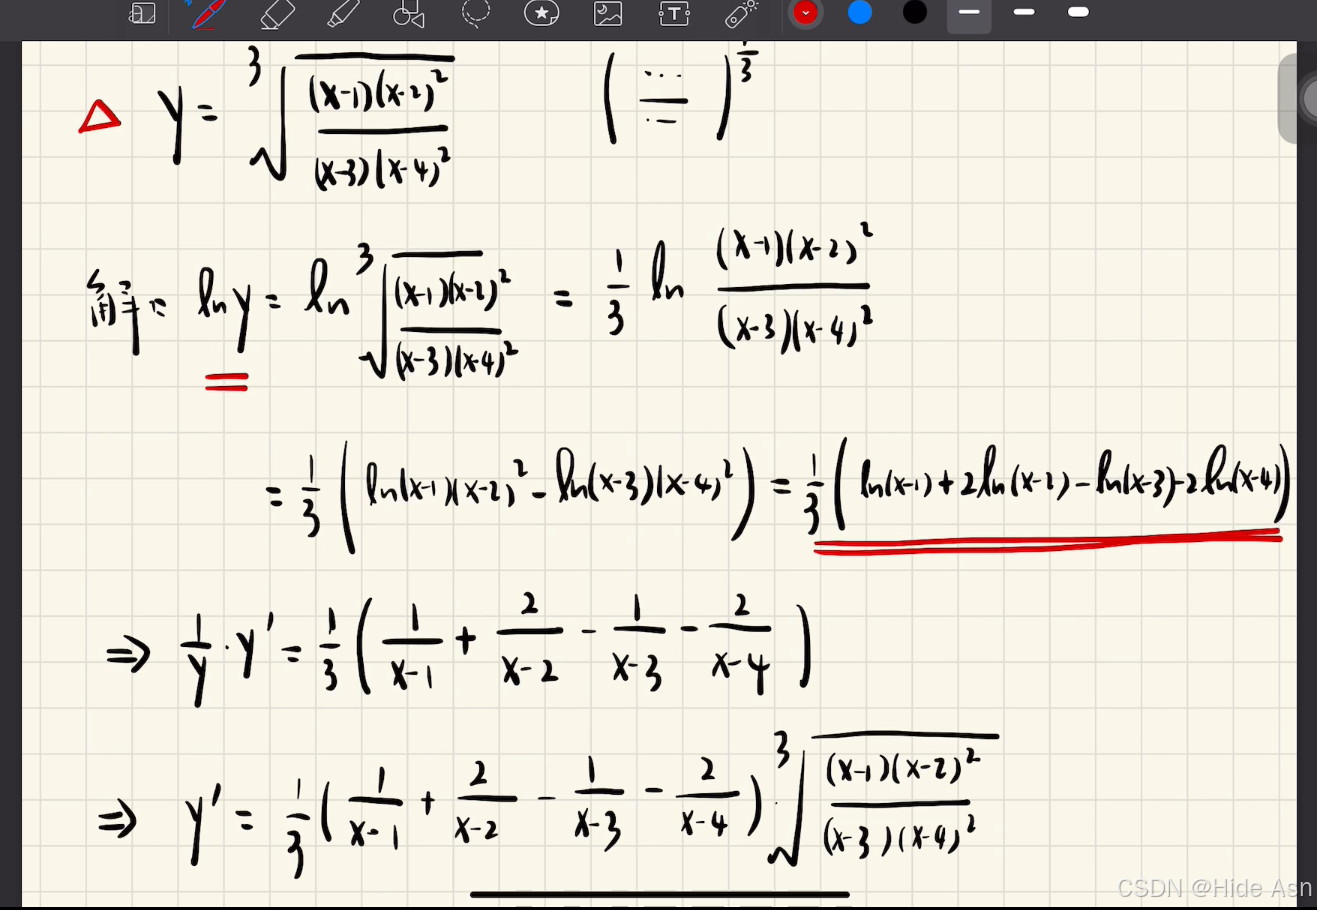 △ y = ³√((x-1)(x-2)²/(x-3)(x-4)²) (⋯/⋯)^(1/3)
解: ln y = ln ³√((x-1)(x-2)²/(x-3)(x-4)²) = 1/3 ln (x-1)(x-2)²/(x-3)(x-4)²
= 1/3 (ln(x-1)(x-2)² - ln(x-3)(x-4)²) = 1/3 (ln(x-1) + 2ln(x-2) - ln(x-3) - 2ln(x-4))
⇒ 1/y · y' = 1/3 (1/(x-1) + 2/(x-2) - 1/(x-3) - 2/(x-4))
⇒ y' = 1/3 (1/(x-1) + 2/(x-2) - 1/(x-3) - 2/(x-4)) · ³√((x-1)(x-2)²/(x-3)(x-4)²)
CSDN @Hide Asn